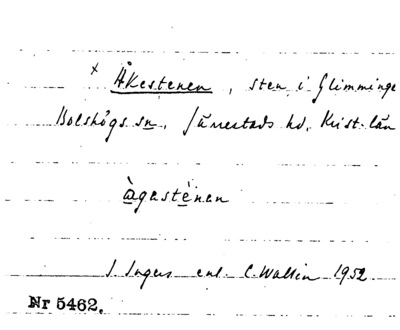 x Åkestenen, sten i Glimminge
Bolshögs sn, Järrestads hd, Krist. län
àgastènen
I. Ingers enl. C. Wallin 1952
Nr 5462.